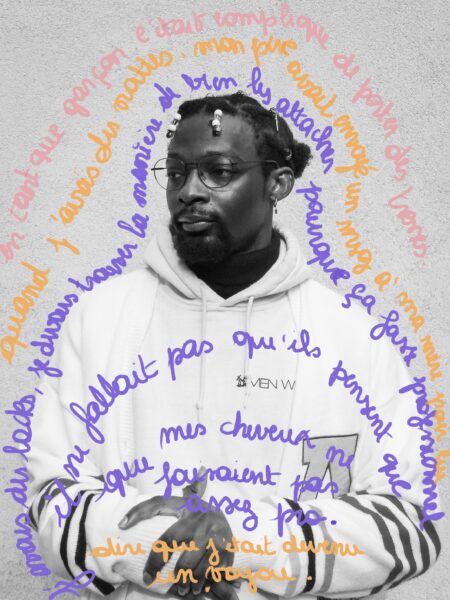 en tant que garçon c'était compliqué de porter des tresses.
quand j'avais des nattes, mon père avait envoyé un msg à ma mère pour lui
dire que j'étais devenu
un voyou.
Si j'avais des locks, je devais trouver la manière de bien les attacher pour que ça fasse professionnel
il ne fallait pas qu'ils pensent que
mes cheveux ne
faisaient pas
assez pro.
MEN W
A